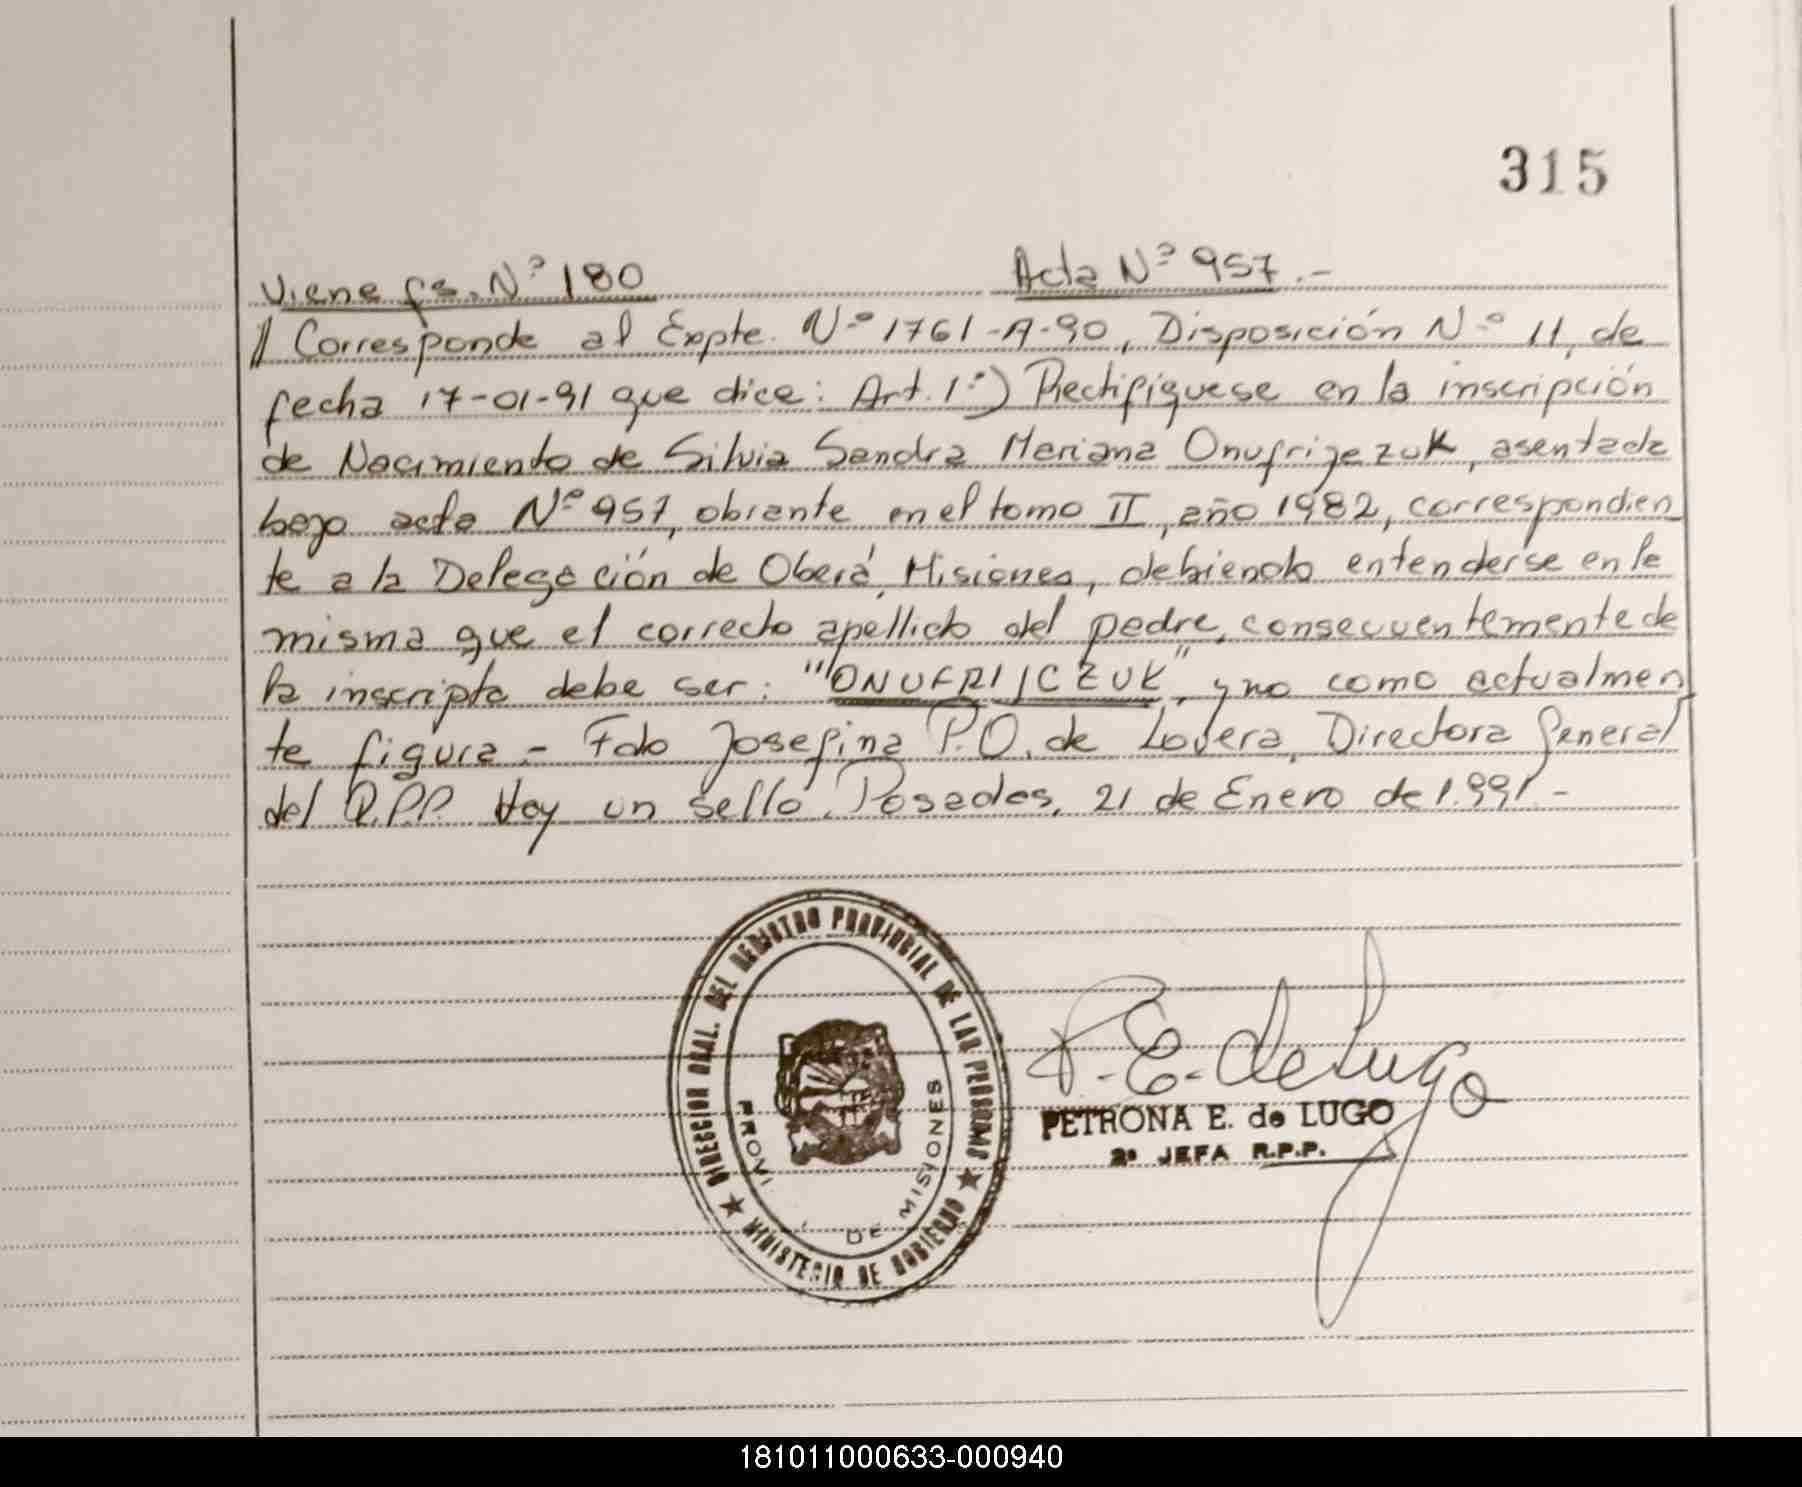 315
Viene fs. Nº 180 Acta Nº 957.-
// Corresponde al Expte. Nº 1761-A-90, Disposición Nº 11, de
fecha 17-01-91 que dice: Art. 1º) Rectifíquese en la inscripción
de Nacimiento de Silvia Sandra Mariana Onufrijezuk, asentada
bajo acta Nº 957, obrante en el tomo II, año 1982, correspondien
te a la Delegación de Oberá, Misiones, debiendo entenderse en la
misma que el correcto apellido del padre, consecuentemente de
la inscripta debe ser: "ONUFRIJCZUK", y no como actualmen
te figura - Fdo Josefina P.O. de Lovera, Directora General
del R.P.P. Hay un sello. Posadas, 21 de Enero de 1.991.-
DIRECCION GRAL. DEL REGISTRO PROVINCIAL DE LAS PERSONAS
MINISTERIO DE GOBIERNO
PROVI . DE MISIONES
P. E. de Lugo
PETRONA E. de LUGO
2ª JEFA R.P.P.
181011000633-000940